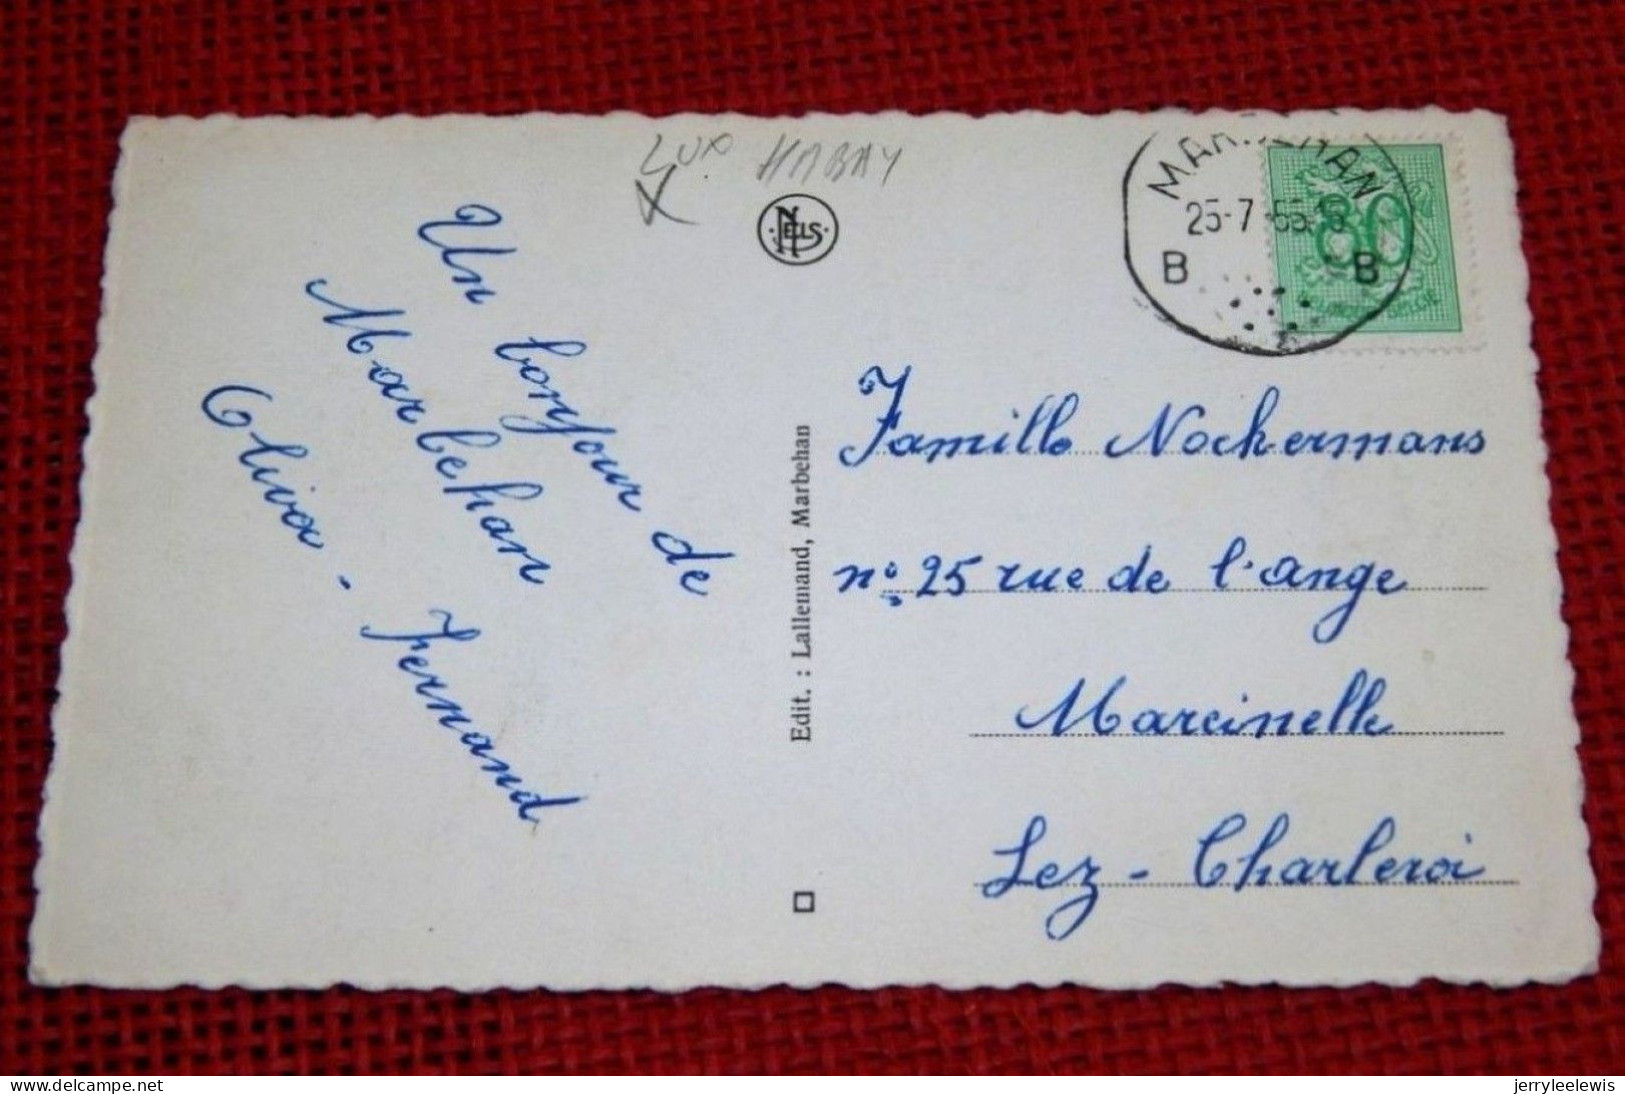 Lux HABAY
NELS
MAR..EHAN
25-7
B B
80
BELGIE
Un bonjour de
Marbehan
Oliva - Fernand
Edit. : Lallemand, Marbehan
Famille Nockermans
n° 25 rue de l'ange
Marcinelle
Lez - Charleroi
jerryleelewis
www.delcampe.net